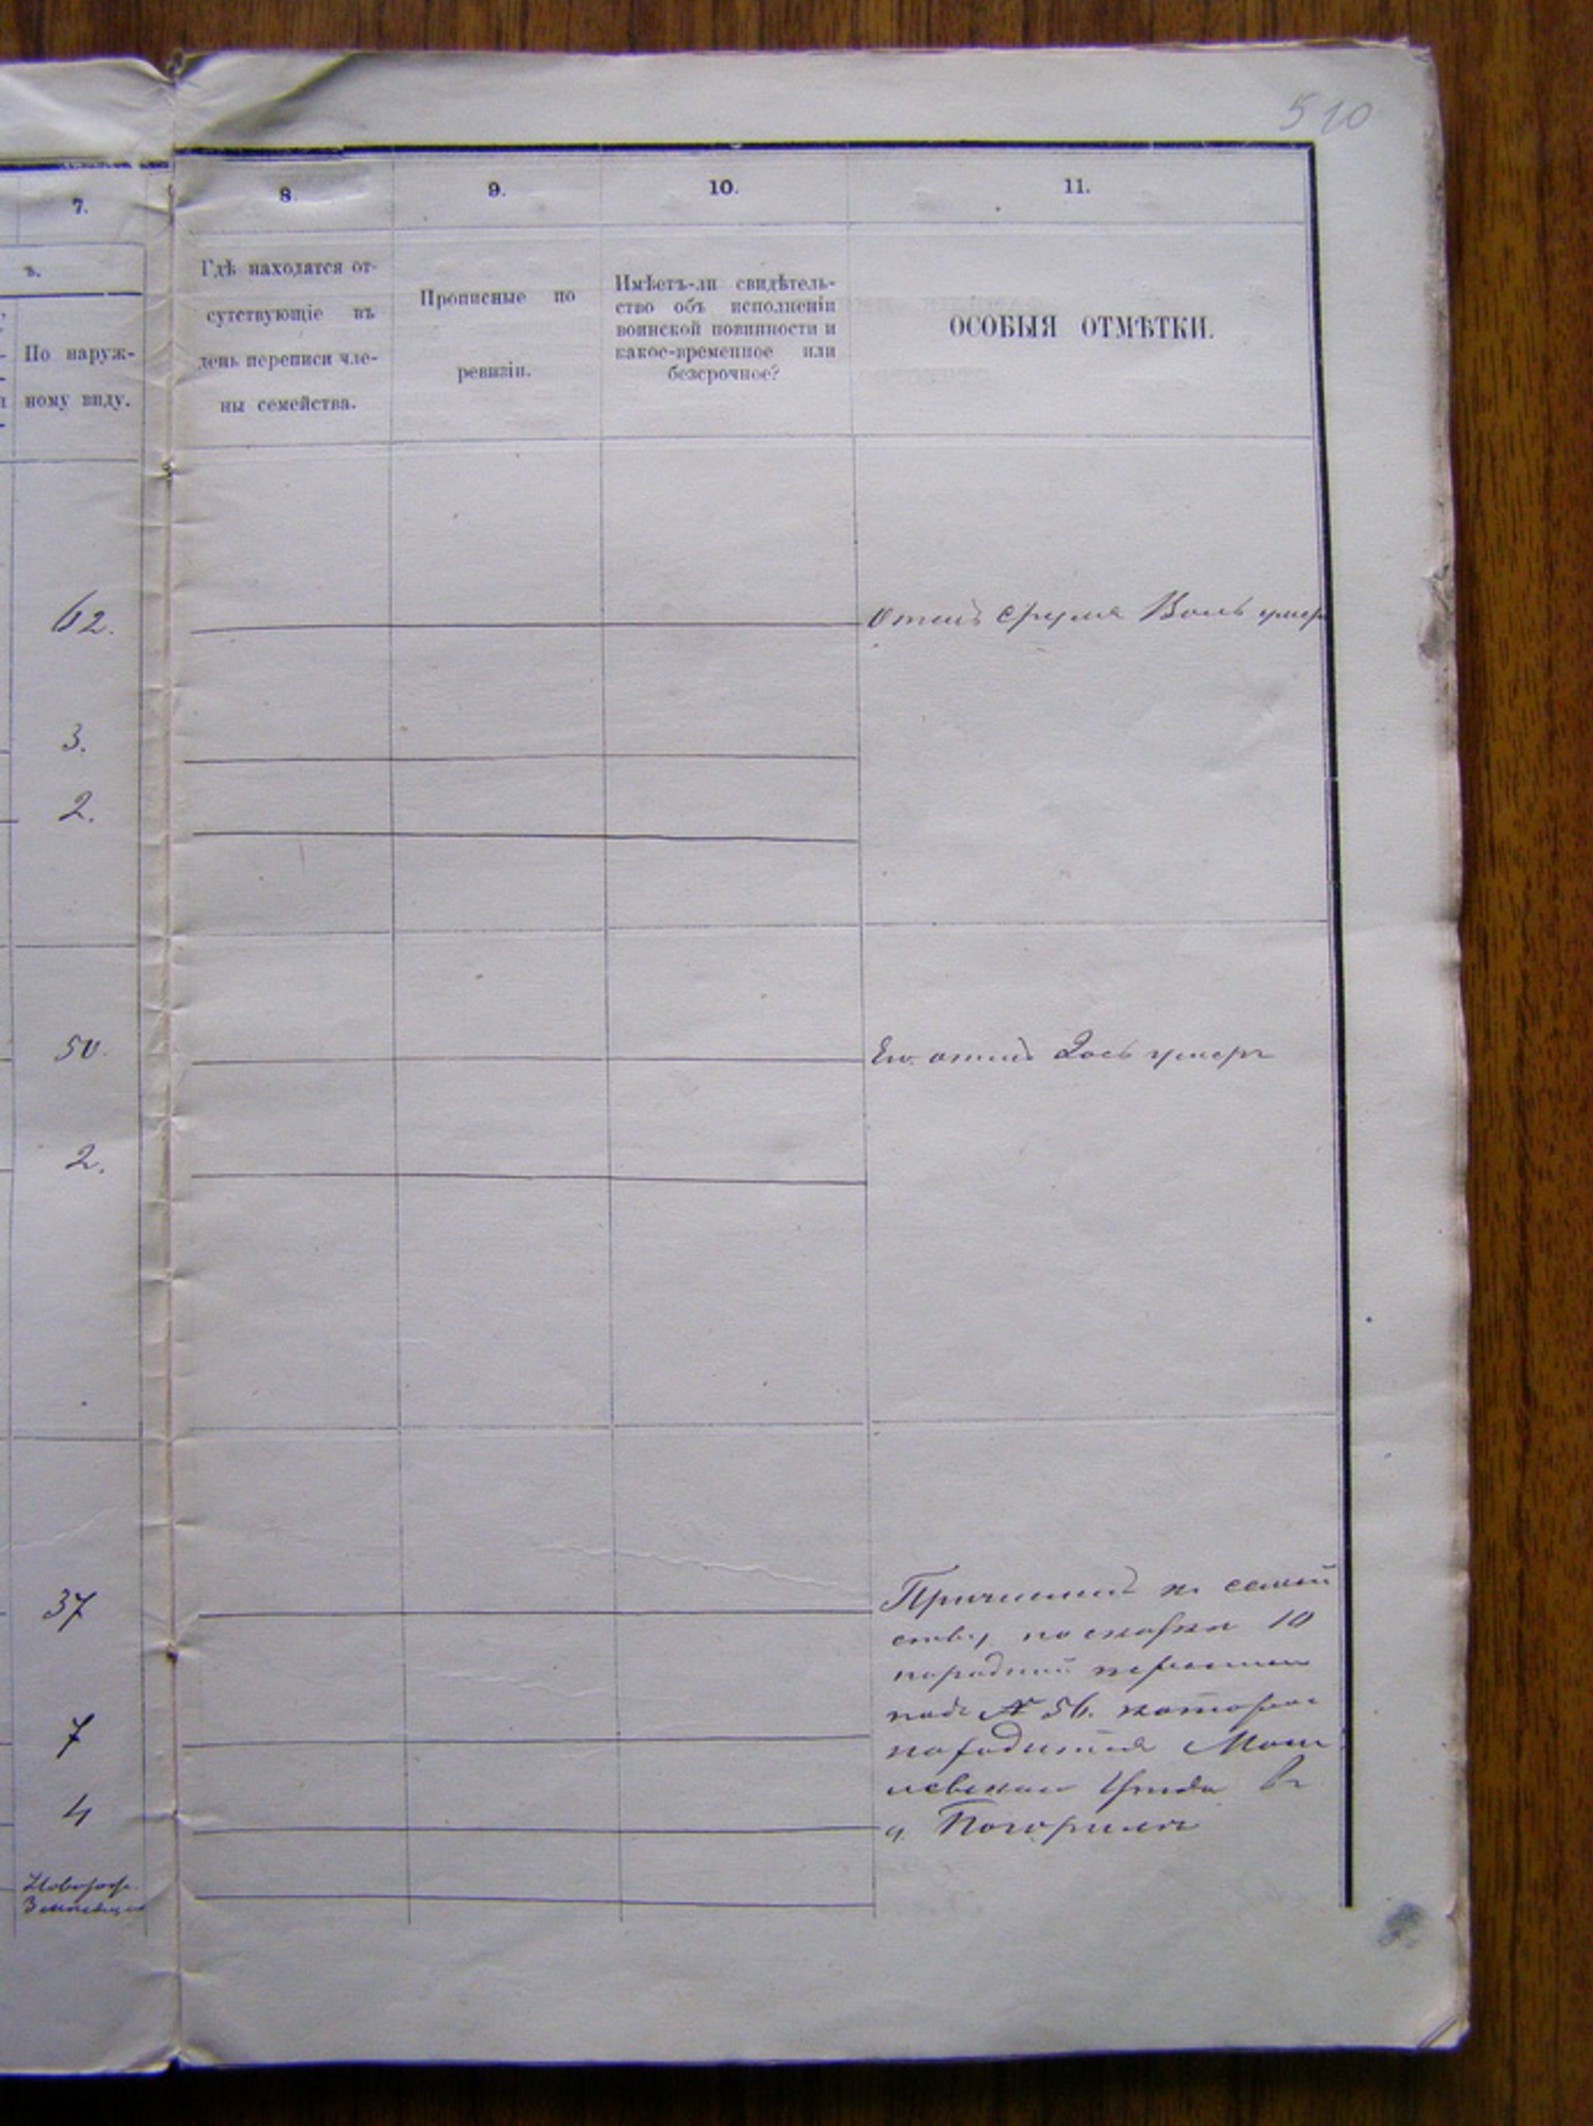 510
7.
8.
9.
10.
11.
ъ.
По наруж-
ному виду.
Гдѣ находятся от-
сутствующіе въ
день переписи чле-
ны семейства.
Прописные по
ревизіи.
Имѣетъ-ли свидѣтель-
ство объ исполненіи
воинской повинности и
какое-временное или
безсрочное?
ОСОБЫЯ ОТМѢТКИ.
62.
Отецъ Сруля Воль умеръ
3.
2.
50.
Его отецъ умеръ
2.
37
къ семей
ству, по сказкѣ 10
народной переписи
подъ № 56. которое
находится Моги
левскаго уѣзда въ
7
4
м. Погорила
Новорож.